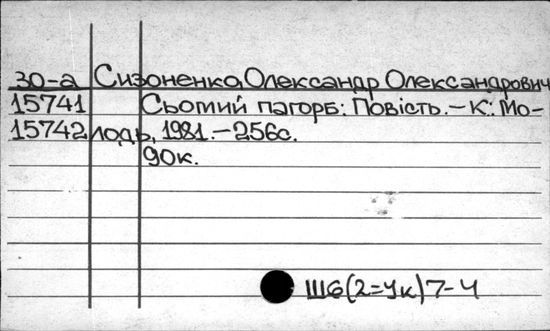 30-а Сизоненко, Олександр Олександрович
15741 Сьомий пагорб: Повість. – К.: Мо-
15742 лодь, 1981. – 256с.
90к.
Ш6(2=Ук)7-4